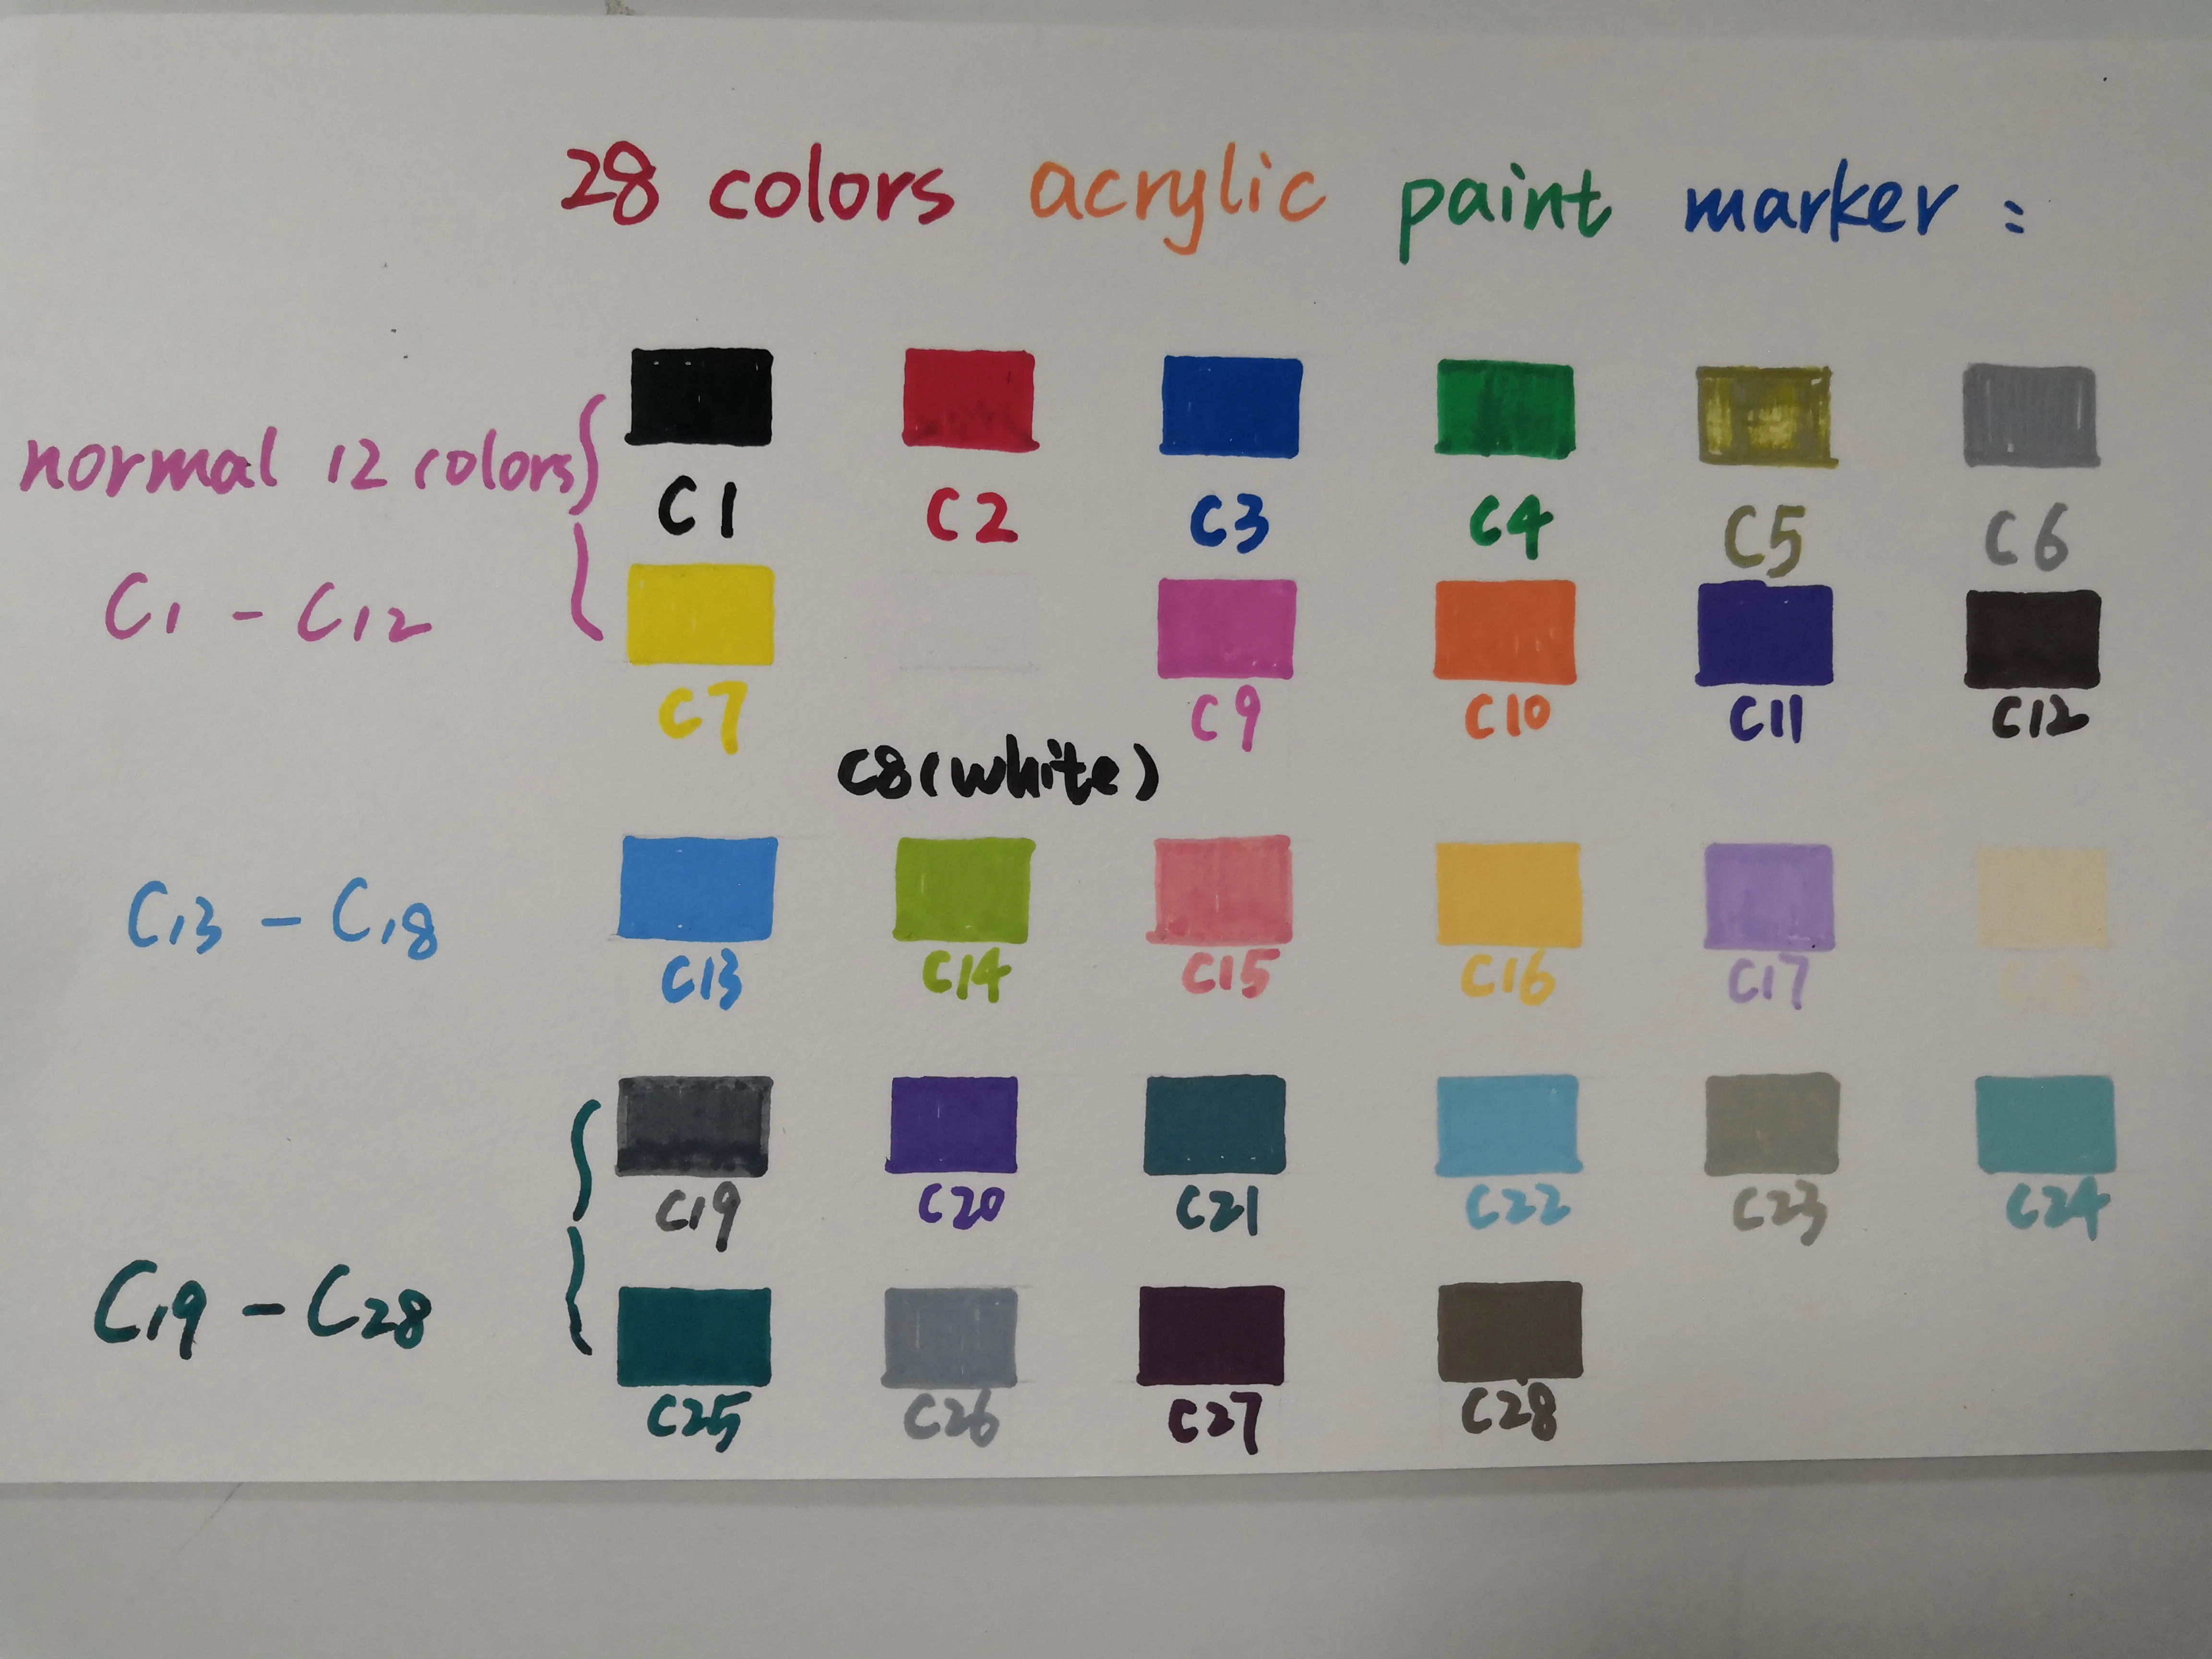 28 colors acrylic paint marker :
normal 12 colors
C1 C2 C3 C4 C5 C6
C1 - C12
C7 C9 C10 C11 C12
C8 (white)
C13 - C18
C13 C14 C15 C16 C17 C18
C19 C20 C21 C22 C23 C24
C19 - C28
C25 C26 C27 C28